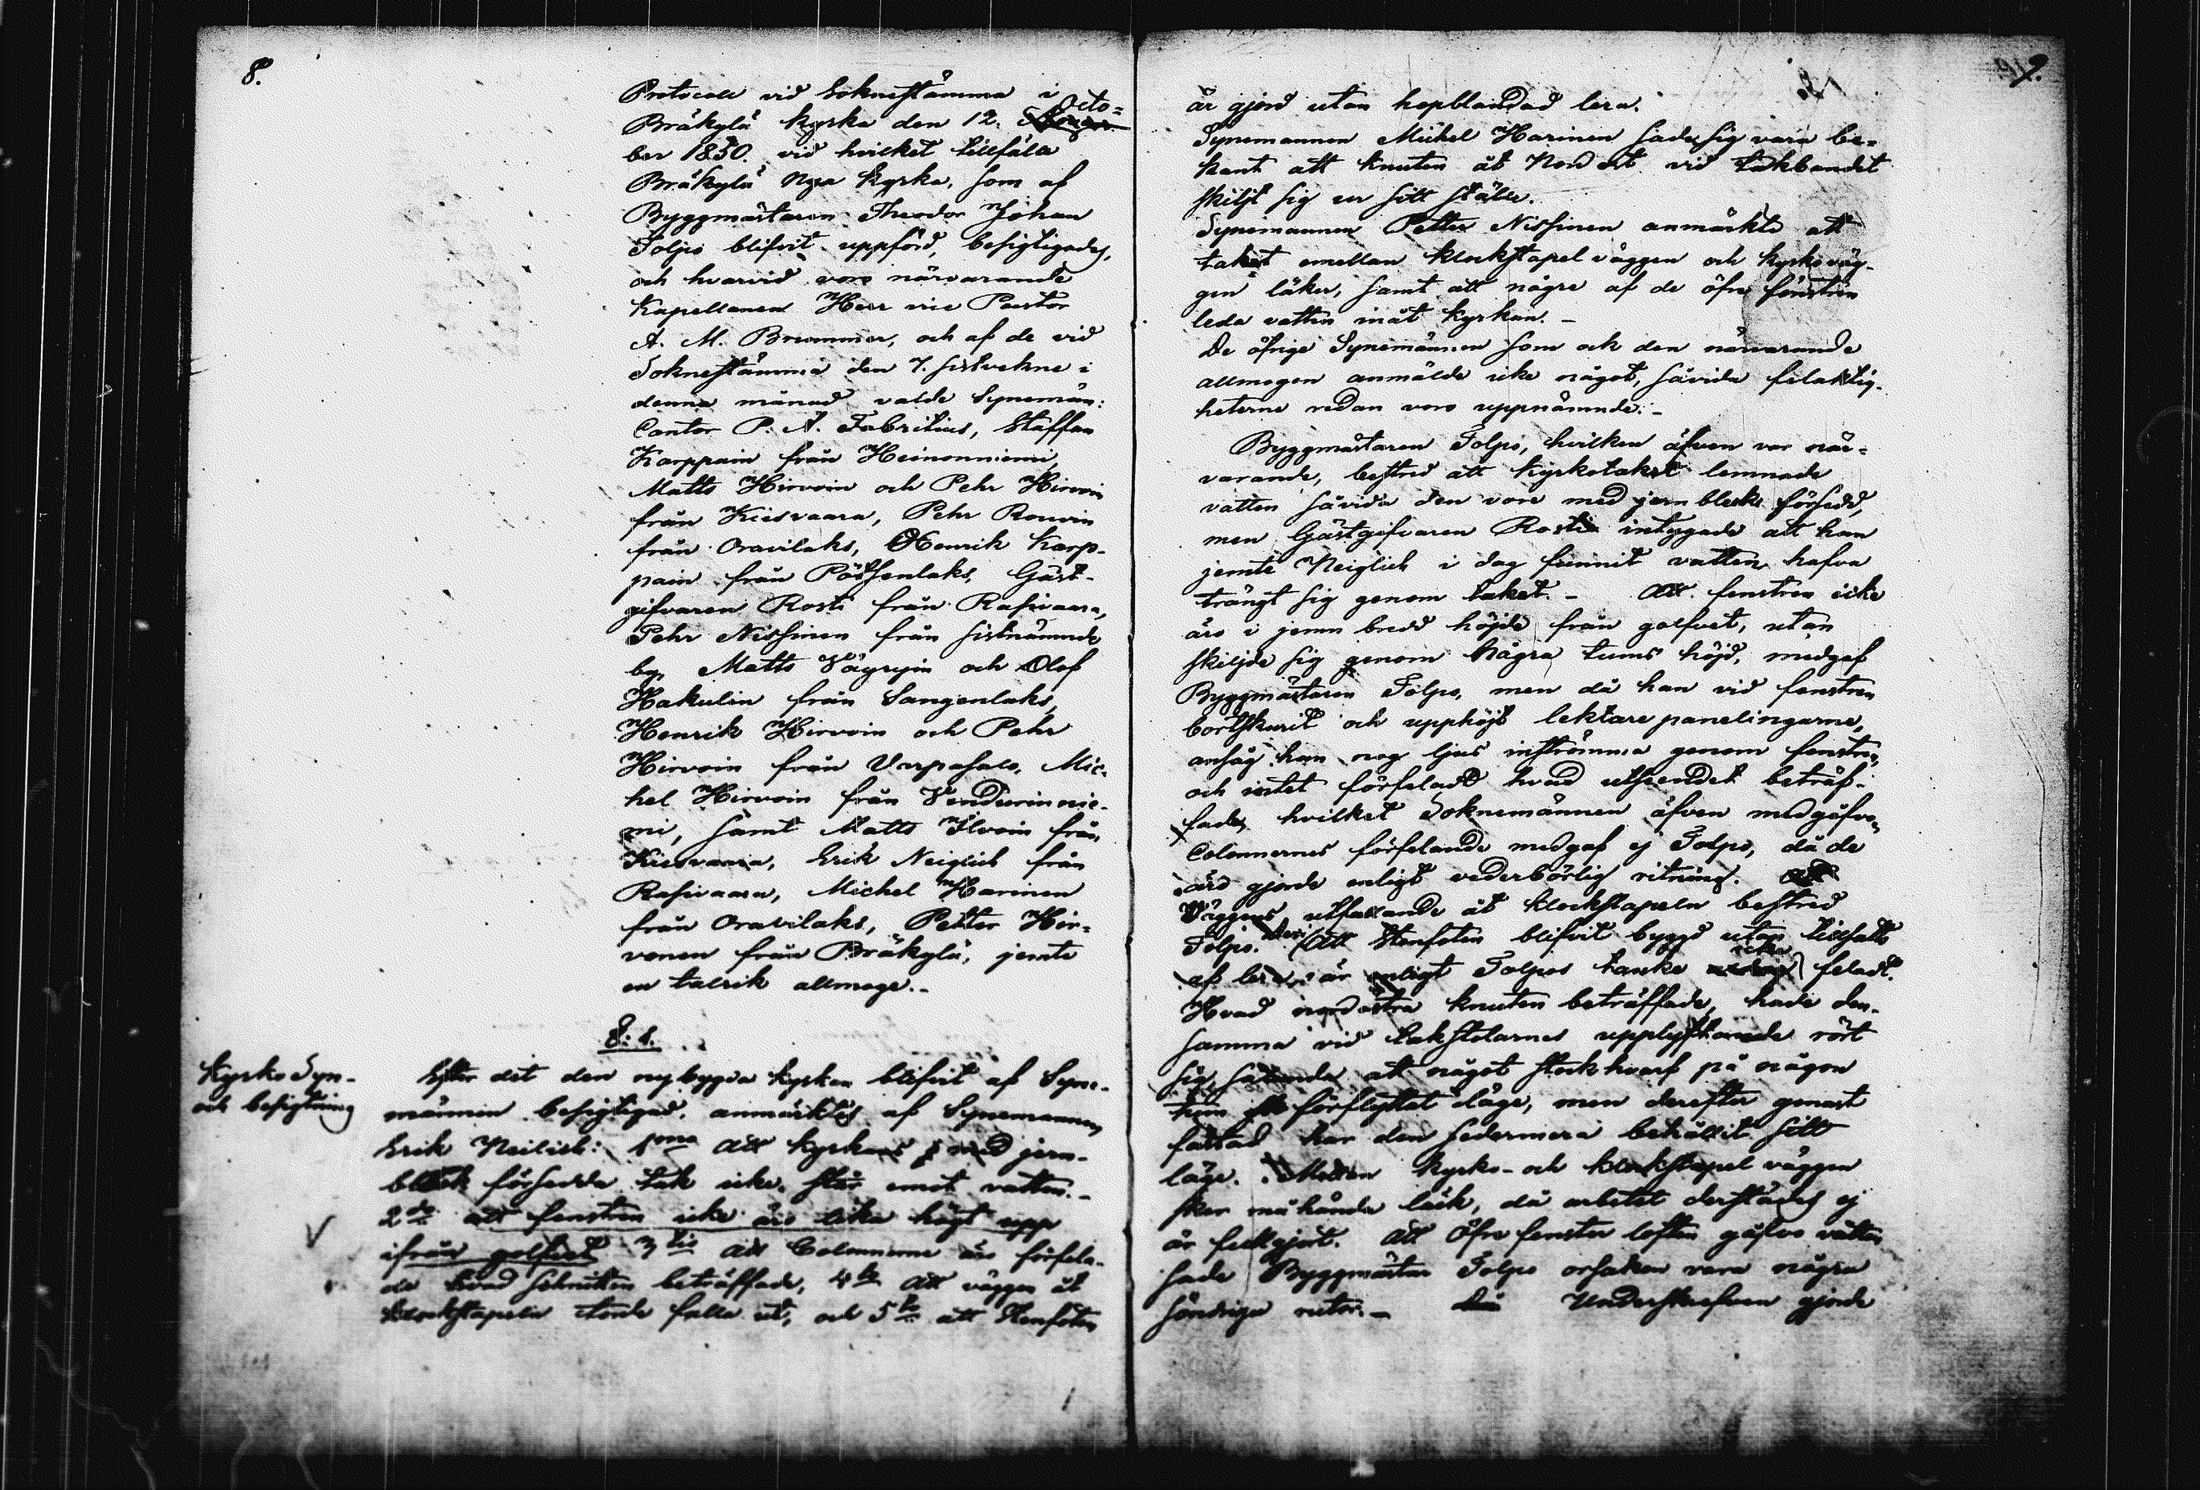 8.
Protocoll vid Soknestämma i
Bräkylä kyrka den 12. Octo=
ber 1850. vid hvilket tillfälle
Bräkylä Nya kyrka, som af
Byggmästaren Theodor Johan
Tolpo blifvit uppförd, besigtigades,
och hvarvid voro närvarande
Kapellanen Herr vice Pastor
A. M. Brummer, och af de vid
Soknestämma den 7. sistvekne i
denna månad valde Synemän:
Cantor P. A. Fabritius, Staffan
Karppain från Heinonniemi,
Matts Hirvoin och Pehr Hirvoin
från Kiesvaara, Pehr Rouvin
från Oravilaks, Henrik Karp-
pain från Pötsenlaks, Gäst-
gifvaren Rosti från Rasivaara,
Pehr Nissinen från sistnämnde
by, Matts Väyryin och Olof
Hakulin från Sangenlaks,
Henrik Hirvoin och Pehr
Hirvoin från Varpasalo, Mic-
hel Hirvoin från Vendurinnie-
mi, samt Matts Ilvoin från
Kiesvaara, Erik Neiglick från
Rasivaara, Michel Harinen
från Oravilaks, Petter Hir-
vonen från Bräkylä, jemte
en talrik allmoge.-
§. 1.
Kyrko Syn-
och besigtning
Efter det den nybygda kyrkan blifvit af Syne-
männen besigtigad, anmärktes af Synemannen
Erik Neilick: 1mo att kyrkans med jern-
bleck försedde tak icke står emot vatten.-
2do att fenstren icke äro lika högt upp
ifrån golfvet 3tio att Colonnerne äro förfela-
de hvad  beträffade, 4to att väggen åt
klockstapeln torde falla ut, och 5to att Stenfoten
9.
är gjord utan hopblandad lera.
Synemannen Michel Harinen sade sig vara be-
kant att knuten åt Nord ost vid takbandet
skiljt sig ur sitt ställe.
Synemannen Petter Nissinen anmärkte att
taket emellan klockstapel väggen och kyrkoväg-
gen läker, samt att någre af de öfre fönstren
leda vatten inåt kyrkan. -
De öfrige Synemännen som och den närvarande
allmogen anmälde icke något, såvida felaktig-
heterne redan voro uppnämnde. -
Byggmästaren Tolpo, hvilken äfven var när-
varande, bestred att kyrkotaket lemnade
vatten såvida den vore med jern bleck försedd,
men Gästgifvaren Rosti intygade att han
jemte Neiglick i dag funnit vatten hafva
trängt sig genom taket. - Att fenstren icke
äro i jemn bredd höjde från golfvet, utan
skiljde sig genom några tums höjd, medgaf
Byggmästaren Tolpo, men då han vid fenstren
bortskurit och upphöjt lektare panelingarne,
ansåg han nog ljus inströmma genom fenstren,
och intet förfeladt hvad utseendet beträf-
fade, hvilket Soknemännen äfven medgåfvo,
Colonnernes förfelande medgaf ej Tolpo, då de
äro gjorde enligt vederbörlig ritning.
Väggens utfallande åt klockstapeln bestred
Tolpo. Att Stenfoten blifvit byggd utan tillsatts
af lera, är enligt Tolpos tanke icke feladt.
Hvad nordöstra knuten beträffade, hade den-
samma vid takstolarnes upplyftande rört
sig, att något stockhvarf på någon
tum förflyttat läge, men derefter genast
fästad har den sedermera behållit sitt
läge. Mellan kyrko- och klockstapel väggen
sker måhända läck, då arbetet derstädes ej
är fullgjort. Att Öfre fenster loften gåfvo vatten
sade Byggmästar Tolpo orsaken vara några
söndriga rutor. - Underskrefven gjorde